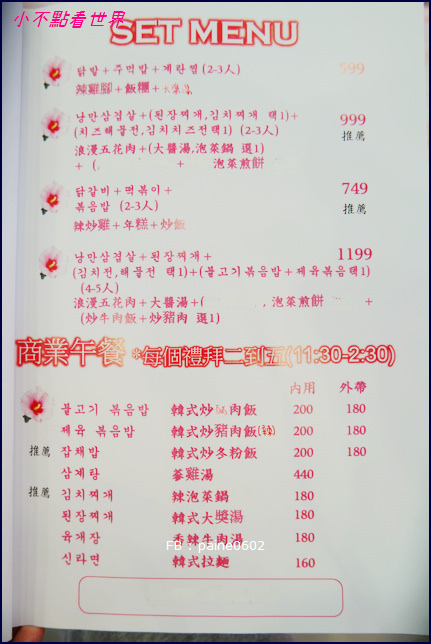 小不點看世界
SET MENU
닭발+주먹밥+계란찜 (2-3人) 599
辣雞腳+飯糰+
낭만삼겹살+(된장찌개,김치찌개 택1)+ 999
(치즈해물전,김치치즈전택1) (2-3人) 推薦
浪漫五花肉+(大醬湯,泡菜鍋 選1)
+ ( + 泡菜煎餅
닭갈비+떡볶이+ 749
볶음밥 (2-3人) 推薦
辣炒雞+年糕+炒飯
낭만삼겹살+된장찌개+ 1199
(김치전,해물전 택1)+(불고기볶음밥+제육볶음택1)
(4-5人)
浪漫五花肉+大醬湯+( , 泡菜煎餅 +
(炒牛肉飯+炒豬肉 選1)
商業午餐 *每個禮拜二到五(11:30-2:30)
內用 外帶
불고기 볶음밥 韓式炒 肉飯 200 180
제육 볶음밥 韓式炒豬肉飯(辣) 200 180
推薦 잡채밥 韓式炒冬粉飯 200 180
삼계탕 蔘雞湯 440
推薦 김치찌개 辣泡菜鍋 180
된장찌개 韓式大獎湯 180
육개장 香辣牛肉湯 180
신라면 韓式拉麵 160
FB : paine0602